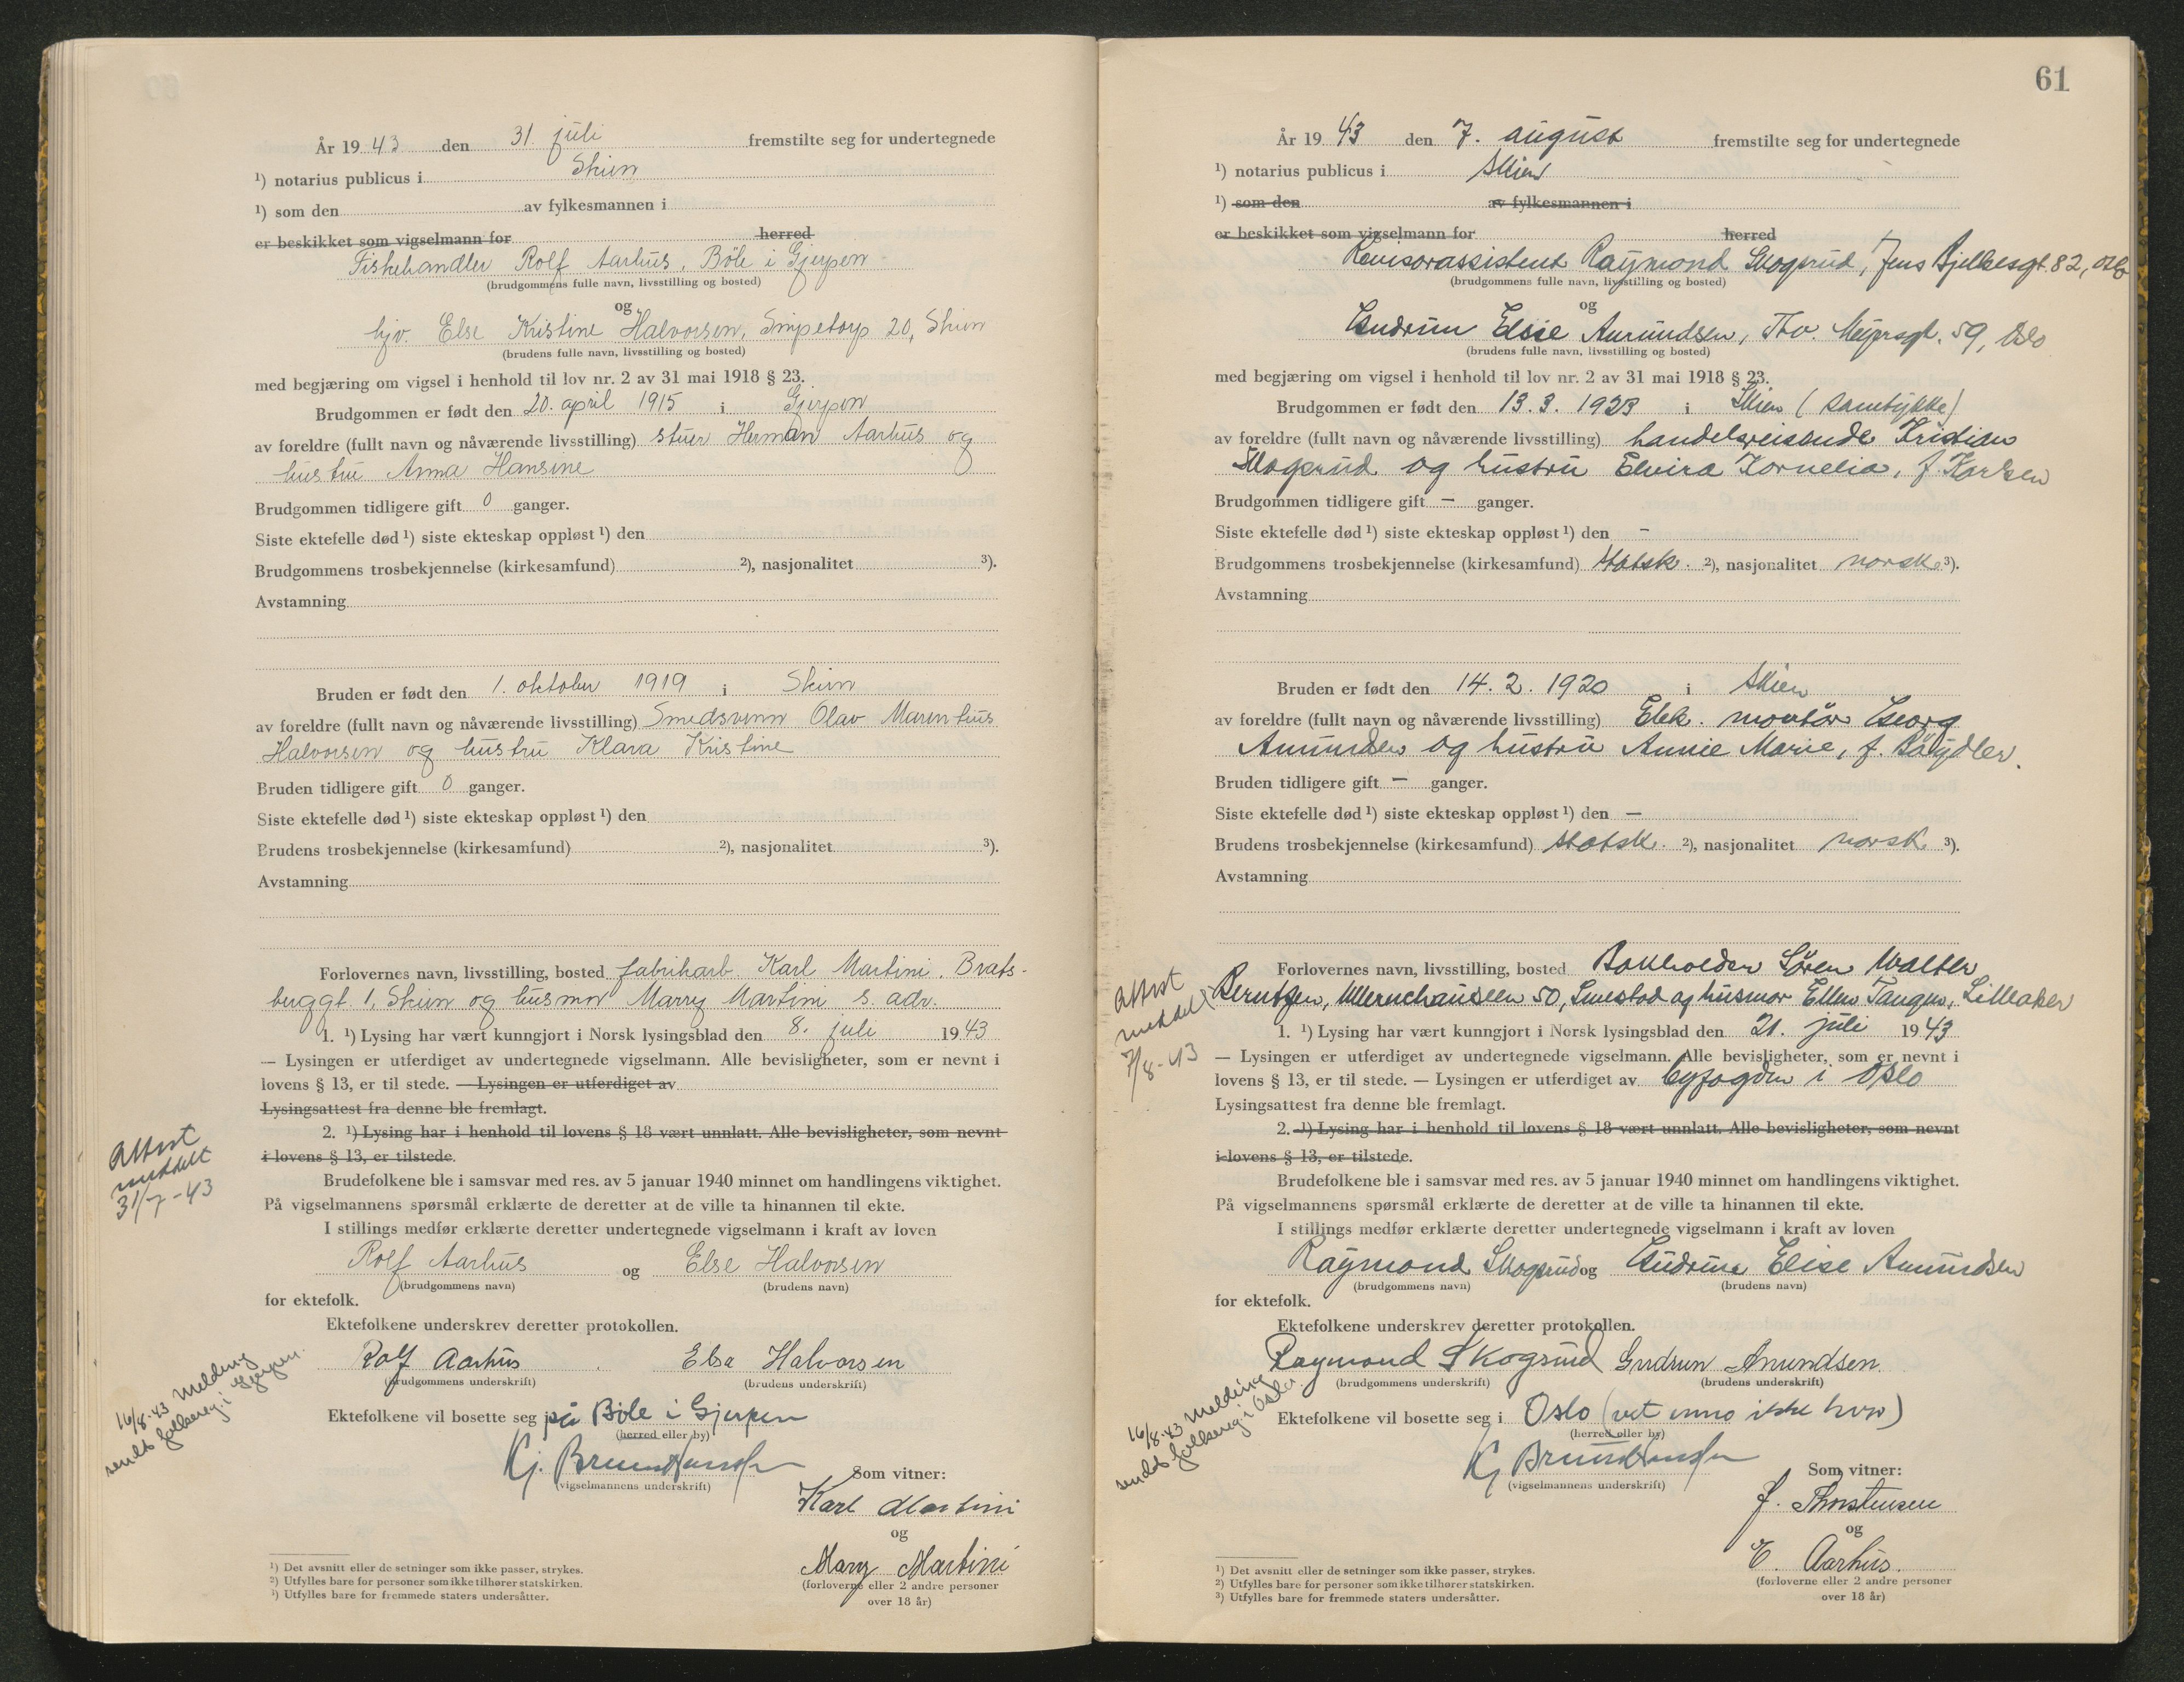 År 1943 den 31. juli fremstilte seg for undertegnede
¹) notarius publicus i Skien
¹) som den av fylkesmannen i
er beskikket som vigselmann for herred
Fiskehandler Rolf Aarhus, Böle i Gjerpen
(brudgommens fulle navn, livsstilling og bosted)
og
hjv. Else Kristine Halvorsen, Snipetorp 20, Skien
(brudens fulle navn, livsstilling og bosted)
med begjæring om vigsel i henhold til lov nr. 2 av 31 mai 1918 § 23.
Brudgommen er født den 20. april 1915 i Gjerpen
av foreldre (fullt navn og nåværende livsstilling) stuer Herman Aarhus og
hustru Anna Hansine
Brudgommen tidligere gift 0 ganger.
Siste ektefelle død ¹) siste ekteskap oppløst ¹) den
Brudgommens trosbekjennelse (kirkesamfund) ²), nasjonalitet ³).
Avstamning
Bruden er født den 1. oktober 1919 i Skien
av foreldre (fullt navn og nåværende livsstilling) Smedsvenn Olav Marentius
Halvorsen og hustru Klara Kristine
Bruden tidligere gift 0 ganger.
Siste ektefelle død ¹) siste ekteskap oppløst ¹) den
Brudens trosbekjennelse (kirkesamfund) ²), nasjonalitet ³).
Avstamning
Forlovernes navn, livsstilling, bosted fabrikarb. Karl Martini, Brats-
berggt. 1, Skien og husmor Marry Martini s. adr.
1. ¹) Lysing har vært kunngjort i Norsk lysingsblad den 8. juli 1943
— Lysingen er utferdiget av undertegnede vigselmann. Alle bevisligheter, som er nevnt i
lovens § 13, er til stede. — Lysingen er utferdiget av
Lysingsattest fra denne ble fremlagt.
2. ¹) Lysing har i henhold til lovens § 18 vært unnlatt. Alle bevisligheter, som nevnt
i lovens § 13, er tilstede.
Attest
meddelt
31/7-43
Brudefolkene ble i samsvar med res. av 5 januar 1940 minnet om handlingens viktighet.
På vigselmannens spørsmål erklærte de deretter at de ville ta hinannen til ekte.
I stillings medfør erklærte deretter undertegnede vigselmann i kraft av loven
Rolf Aarhus og Else Halvorsen
(brudgommens navn) (brudens navn)
for ektefolk.
Ektefolkene underskrev deretter protokollen.
Rolf Aarhus Else Halvorsen
(brudgommens underskrift) (brudens underskrift)
16/8-43 melding
sendt folkereg. i Gjerpen.
Ektefolkene vil bosette seg på Böle i Gjerpen
(herred eller by)
Kj.
(vigselmannens underskrift)
Som vitner:
Karl Martini
og
Mary Martini
(forloverne eller 2 andre personer
over 18 år)
¹) Det avsnitt eller de setninger som ikke passer, strykes.
²) Utfylles bare for personer som ikke tilhører statskirken.
³) Utfylles bare for fremmede staters undersåtter.
61
År 1943 den 7. august fremstilte seg for undertegnede
¹) notarius publicus i Skien
¹) som den av fylkesmannen i
er beskikket som vigselmann for herred
Revisorassistent Raymond Skogrud, Jens Bjelkesgt. 82, Oslo
(brudgommens fulle navn, livsstilling og bosted)
og
Gudrun Elsie Amundsen, Thv. Meyersgt. 59, Oslo
(brudens fulle navn, livsstilling og bosted)
med begjæring om vigsel i henhold til lov nr. 2 av 31 mai 1918 § 23.
Brudgommen er født den 13.3.1923 i Skien (samtykke)
av foreldre (fullt navn og nåværende livsstilling) handelsreisende Kristian
Skogrud og hustru Elvira Kornelia, f. Karlsen
Brudgommen tidligere gift — ganger.
Siste ektefelle død ¹) siste ekteskap oppløst ¹) den —
Brudgommens trosbekjennelse (kirkesamfund) statsk. ²), nasjonalitet norsk ³).
Avstamning
Bruden er født den 14.2.1920 i Skien
av foreldre (fullt navn og nåværende livsstilling) Elek. montör Georg
Amundsen og hustru Annie Marie, f.
Bruden tidligere gift — ganger.
Siste ektefelle død ¹) siste ekteskap oppløst ¹) den —
Brudens trosbekjennelse (kirkesamfund) statsk. ²), nasjonalitet norsk ³).
Avstamning
Attest
meddelt
7/8-43
Forlovernes navn, livsstilling, bosted Bokholder Sören Walter
Berntzen, Ullernchausseen 50, Smestad og husmor Ellen Tangen, Lilleaker
1. ¹) Lysing har vært kunngjort i Norsk lysingsblad den 21. juli 1943
— Lysingen er utferdiget av undertegnede vigselmann. Alle bevisligheter, som er nevnt i
lovens § 13, er til stede. — Lysingen er utferdiget av byfogden i Oslo
Lysingsattest fra denne ble fremlagt.
2. ¹) Lysing har i henhold til lovens § 18 vært unnlatt. Alle bevisligheter, som nevnt
i lovens § 13, er tilstede.
Brudefolkene ble i samsvar med res. av 5 januar 1940 minnet om handlingens viktighet.
På vigselmannens spørsmål erklærte de deretter at de ville ta hinannen til ekte.
I stillings medfør erklærte deretter undertegnede vigselmann i kraft av loven
Raymond Skogrud og Gudrun Elise Amundsen
(brudgommens navn) (brudens navn)
for ektefolk.
Ektefolkene underskrev deretter protokollen.
Raymond Skogrud Gudrun Amundsen
(brudgommens underskrift) (brudens underskrift)
16/8-43 melding
sendt folkereg. i Oslo.
Ektefolkene vil bosette seg i Oslo (vet enno ikke hvor)
(herred eller by)
Kj
(vigselmannens underskrift)
Som vitner:
J. Thorstensen
og
E. Aarhus.
(forloverne eller 2 andre personer
over 18 år)
¹) Det avsnitt eller de setninger som ikke passer, strykes.
²) Utfylles bare for personer som ikke tilhører statskirken.
³) Utfylles bare for fremmede staters undersåtter.